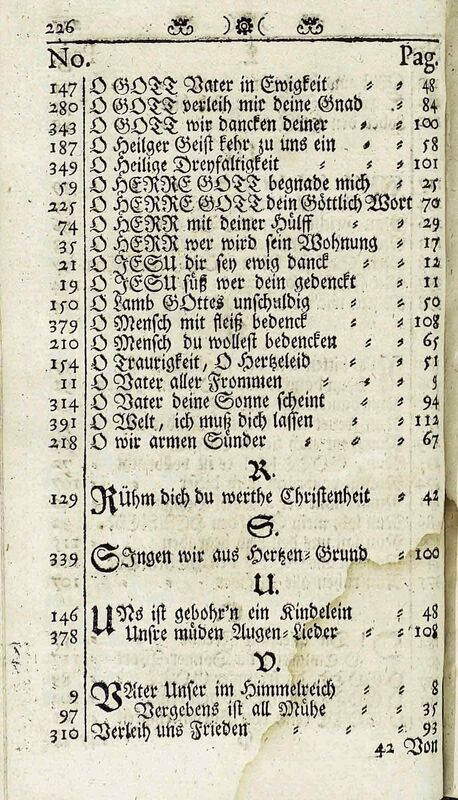 226 )( 
No. Pag.
147 O GOTT Vater in Ewigkeit = = 48
280 O GOTT verleih mir deine Gnad = 84
343 O GOTT wir dancken deiner = = 100
187 O Heilger Geist kehr zu uns ein = = 58
349 O Heilige Dreyfaltigkeit = = 101
59 O HERRE GOTT begnade mich = 25
225 O HERRE GOTT dein Göttlich Wort 70
74 O HERR mit deiner Hülff = = 29
35 O HERR wer wird sein Wohnung = 17
21 O JESU dir sey ewig danck = = 12
19 O JESU süß wer dein gedenckt = = 11
150 O Lamb GOttes unschuldig = = 50
379 O Mensch mit fleiß bedenck = = 108
210 O Mensch du wollest bedencken = = 65
154 O Traurigkeit, O Hertzeleid = = 51
11 O Vater aller Frommen = = = 9
314 O Vater deine Sonne scheint = = 94
391 O Welt, ich muß dich lassen = = 112
218 O wir armen Sünder = = = 67
R.
129 RÜhm dich du werthe Christenheit = 42
S.
339 SIngen wir aus Hertzen-Grund = 100
U.
146 UNs ist gebohr'n ein Kindelein = 48
378 Unsre müden Augen-Lieder = = 108
V.
9 VAter Unser im Himmelreich = = 8
97 Vergebens ist all Mühe = = 35
310 Verleih uns Frieden = = = 93
42 Von